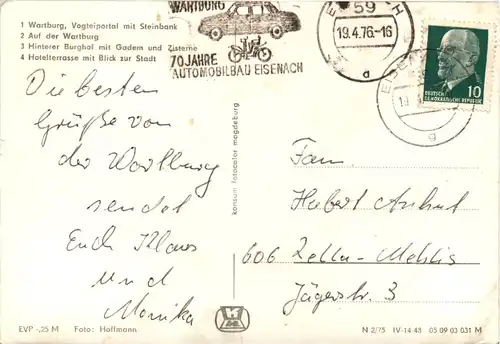 1 Wartburg, Vogteiportal mit Steinbank
2 Auf der Wartburg
3 Hinterer Burghof mit Gadem und Zisterne
4 Hotelterrasse mit Blick zur Stadt
WARTBURG
70 JAHRE
AUTOMOBILBAU EISENACH
59
19.4.76.-16
a
DEUTSCHE
DEMOKRATISCHE REPUBLIK
10
g
Die besten
Grüße von
der Wartburg
sendet
Euch Klaus
und
Monika
konsum fotocolor magdeburg
Fam.
Hubert
606 Zella-Mehlis
Jägerstr. 3
EVP -,25 M Foto: Hoffmann
N 2/75 IV-14-48 05 09 03 031 M